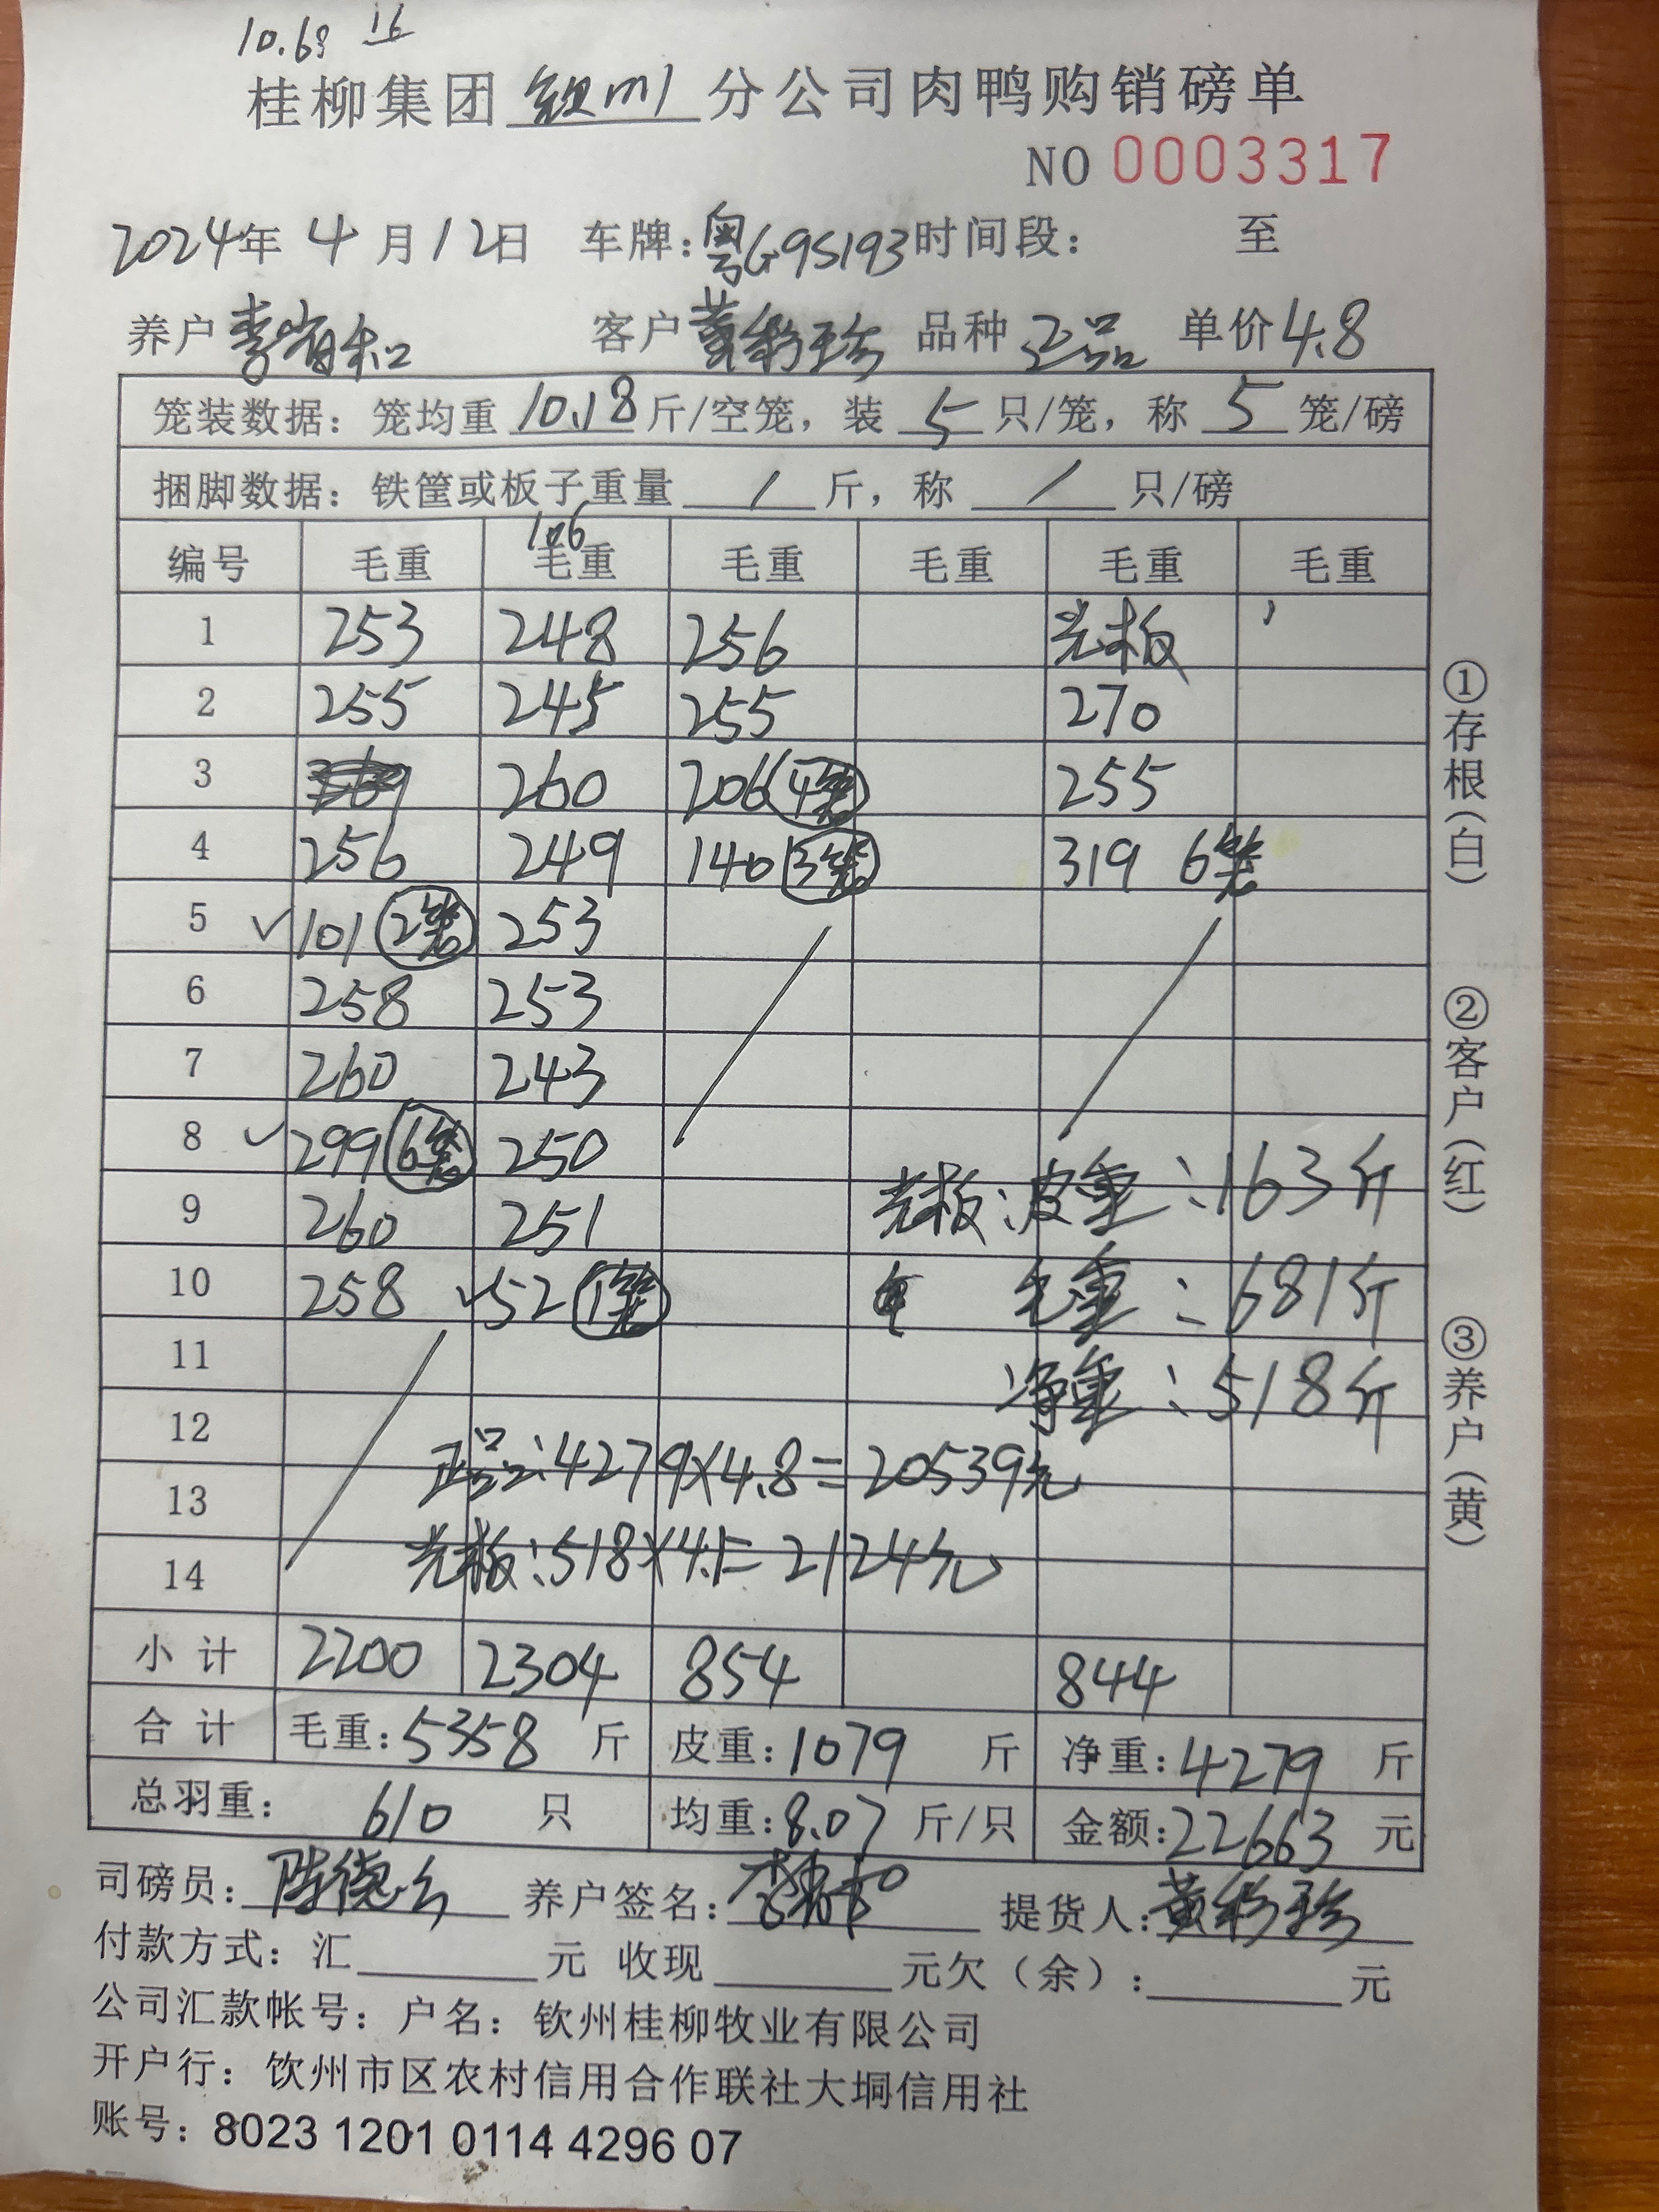 10.68 16
桂柳集团钦州分公司肉鸭购销磅单
NO 0003317
2024年 4 月 12日 车牌:粤G95193 时间段: 至
养户 李省和 客户 黄彩珍 品种 正品 单价 4.8
笼装数据: 笼均重 10.18 斤/空笼, 装 5 只/笼, 称 5 笼/磅
捆脚数据: 铁筐或板子重量 / 斤, 称 / 只/磅
106
编号 毛重 毛重 毛重 毛重 毛重 毛重
1 253 248 256 光板
2 255 245 255 270
3 260 206 4笼 255
4 256 249 140 3笼 319 6笼
5 ✓101 2笼 253
6 258 253
7 260 243
8 ✓299 6笼 250
9 260 251 光板:皮重:163斤
10 258 ✓52 1笼 毛重:681斤
11 净重:518斤
12
正品:4279×4.8=20539元
13
光板:518×4.1=2124元
14
小计 2200 2304 854 844
合计 毛重:5358 斤 皮重:1079 斤 净重:4279 斤
总羽重: 610 只 均重:8.07 斤/只 金额:22663 元
司磅员: 陈德 养户签名: 提货人:黄彩珍
付款方式: 汇 元 收现 元欠(余): 元
公司汇款帐号: 户名: 钦州桂柳牧业有限公司
开户行: 钦州市区农村信用合作联社大垌信用社
账号: 8023 1201 0114 4296 07
①存根(白) ②客户(红) ③养户(黄)